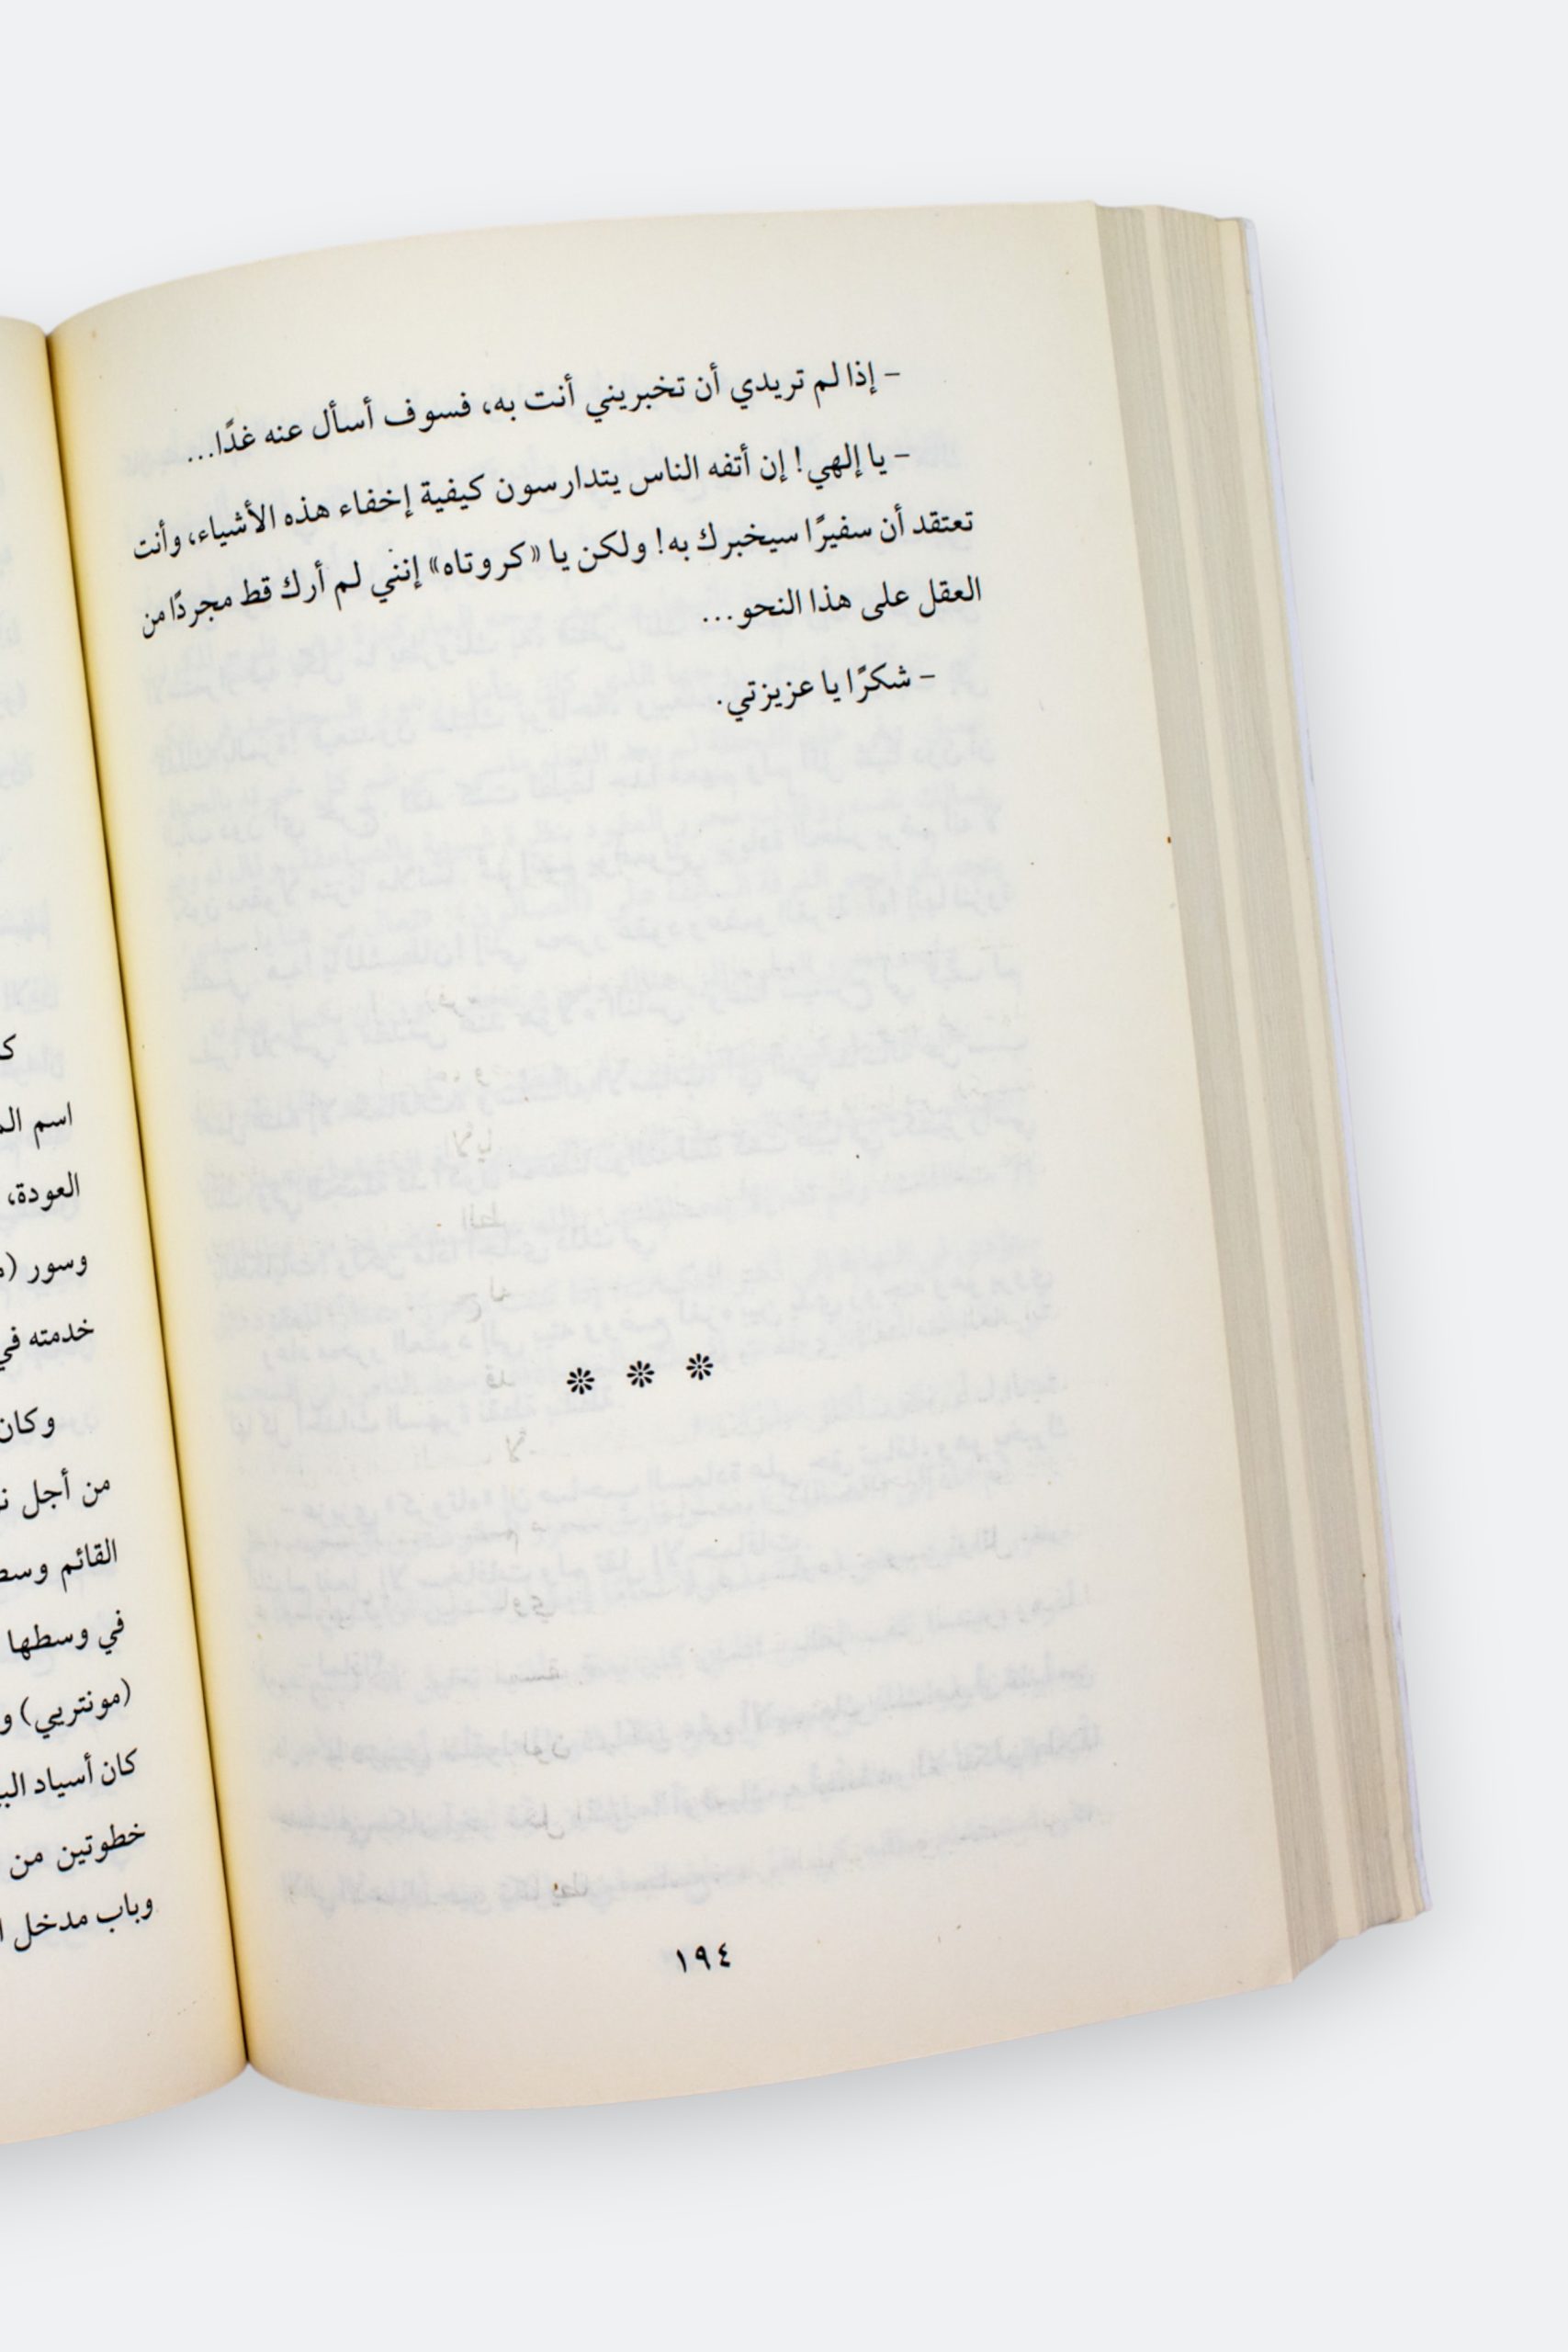 – إذا لم تريدي أن تخبريني أنت به، فسوف أسأل عنه غدًا...
– يا إلهي! إن أتفه الناس يتدارسون كيفية إخفاء هذه الأشياء، وأنت
تعتقد أن سفيرًا سيخبرك به! ولكن يا «كروتاه» إنني لم أرك قط مجردًا من
العقل على هذا النحو...
– شكرًا يا عزيزتي.
❊ ❊ ❊
١٩٤
اسم
العودة،
وسور
خدمته في
وكان
من أجل
القائم
في وسطها
(مونتربي) و
كان أسياد
خطوتين من
وباب مدخل